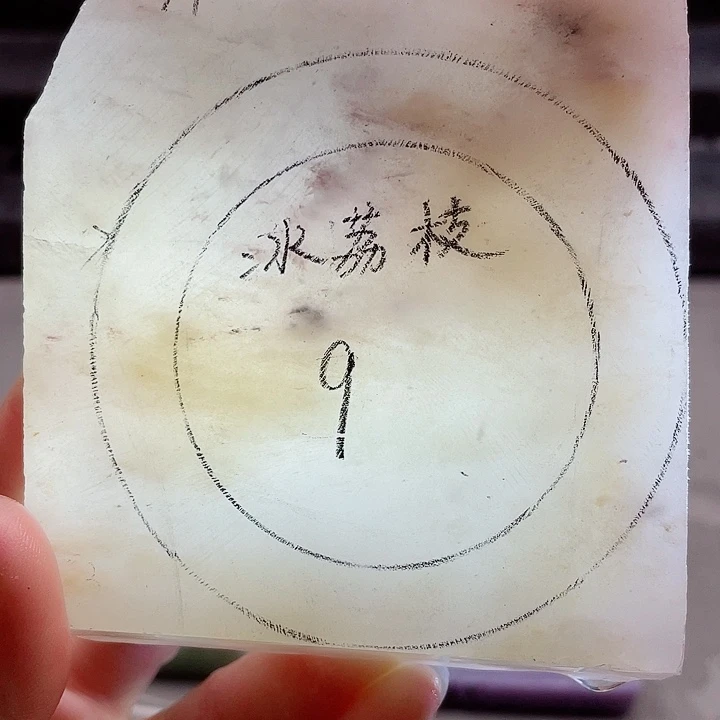 冰荔枝
9